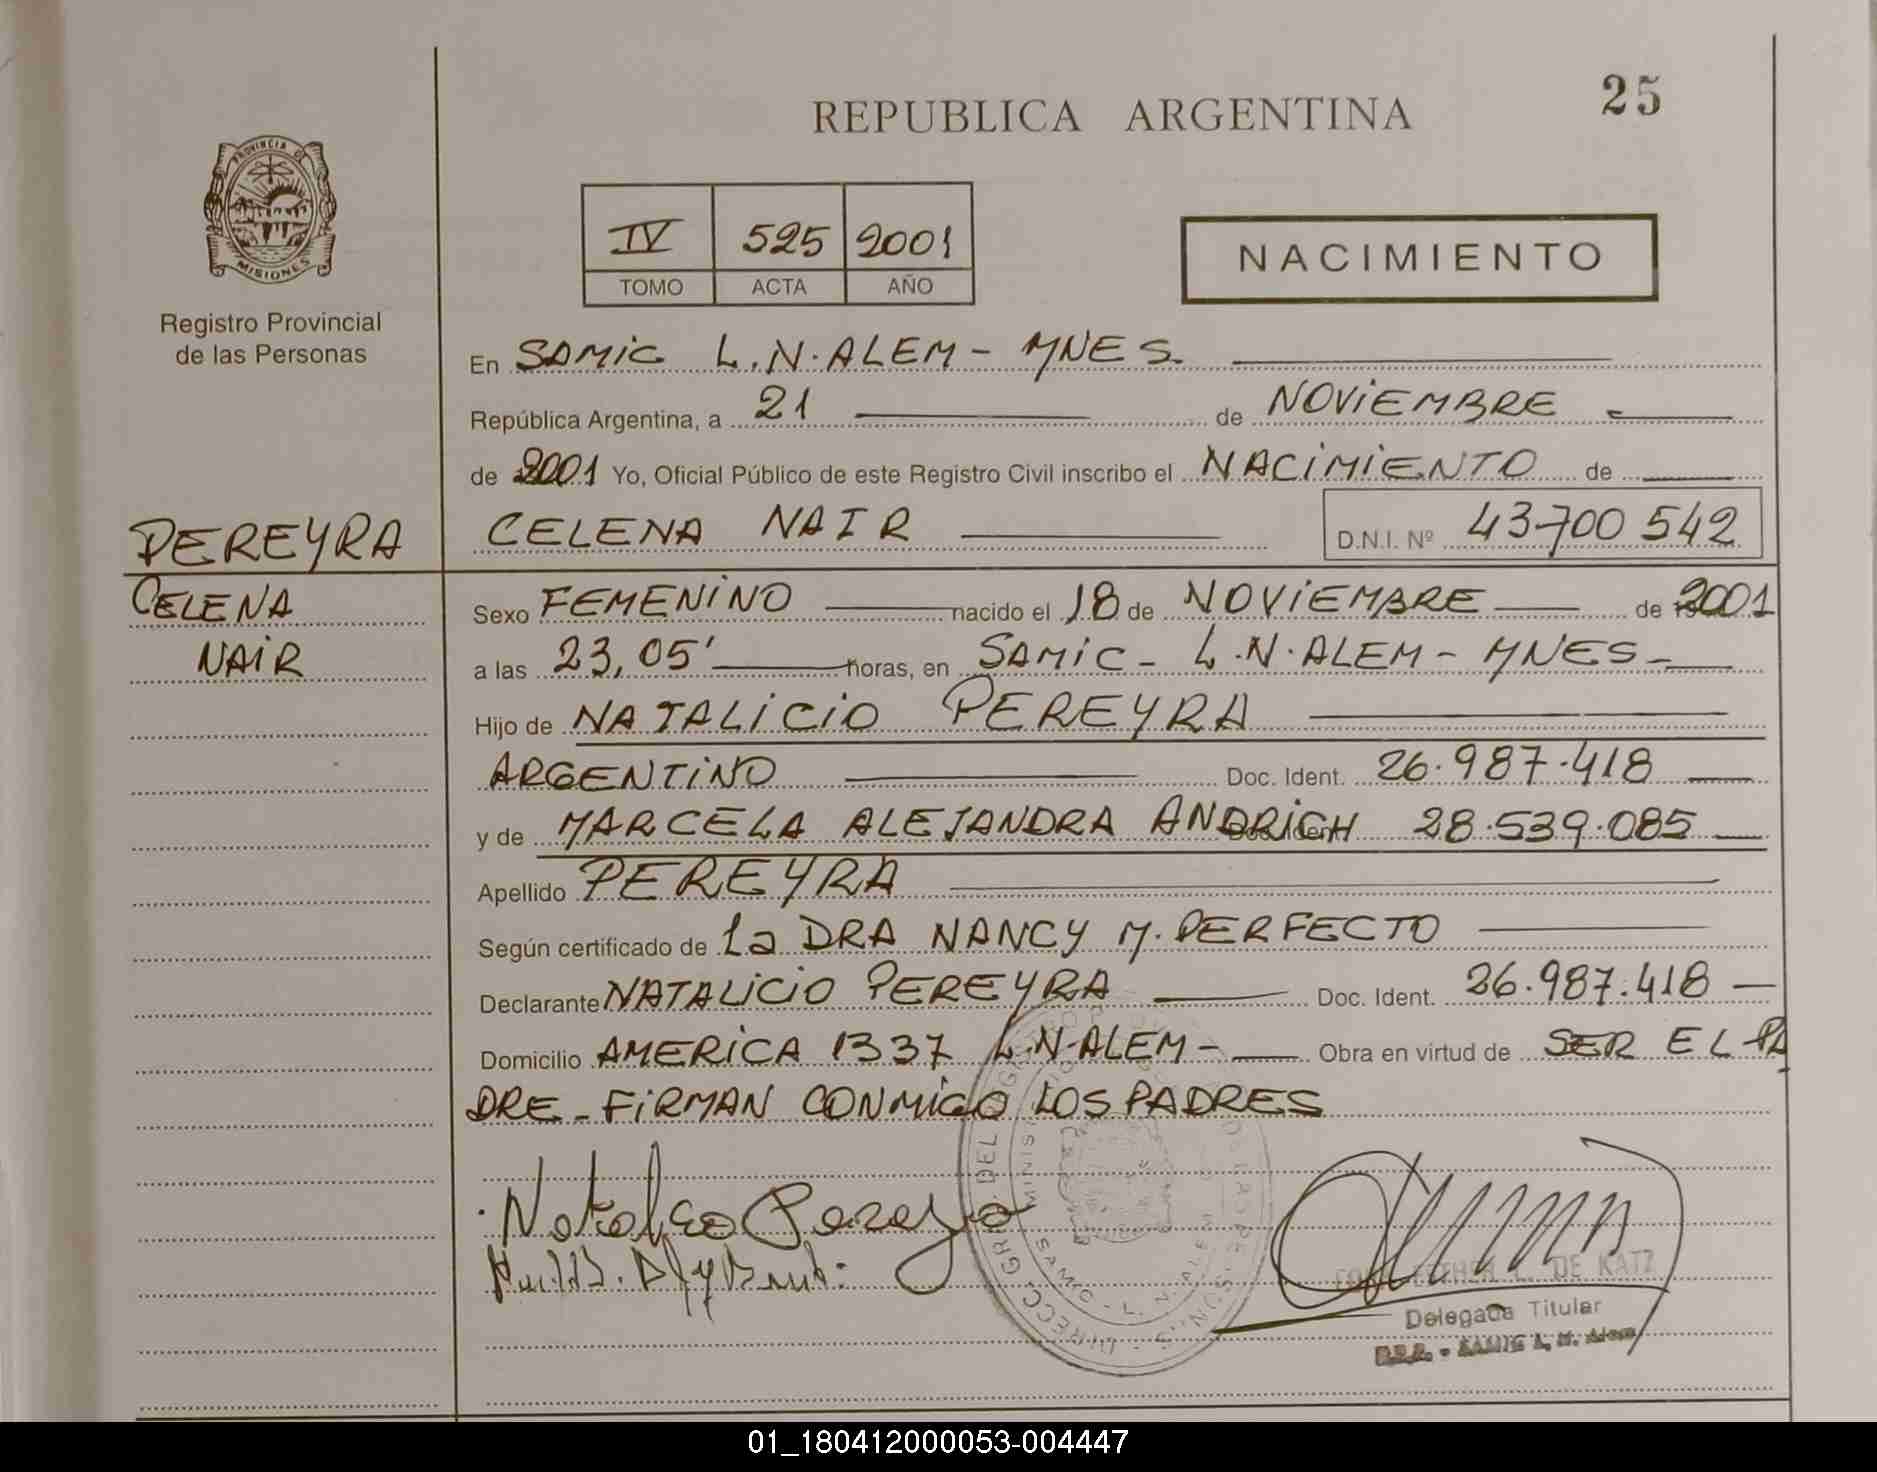 25
REPUBLICA ARGENTINA
PROVINCIA DE
MISIONES
Registro Provincial
de las Personas
IV 525 2001
TOMO ACTA AÑO
NACIMIENTO
En SAMIC L.N.ALEM - MNES.
República Argentina, a 21 de NOVIEMBRE
de 2001 Yo, Oficial Público de este Registro Civil inscribo el NACIMIENTO de
PEREYRA CELENA NAIR D.N.I. Nº 43700 542
CELENA Sexo FEMENINO nacido el 18 de NOVIEMBRE de 2001
NAIR a las 23,05' horas, en SAMIC - L.N.ALEM - MNES -
Hijo de NATALICIO PEREYRA
ARGENTINO Doc. Ident. 26.987.418
y de MARCELA ALEJANDRA ANDRICH Doc. Ident. 28.539.085
Apellido PEREYRA
Según certificado de La DRA NANCY M. PERFECTO
Declarante NATALICIO PEREYRA Doc. Ident. 26.987.418
Domicilio AMERICA 1337 L.N.ALEM - Obra en virtud de SER EL PA
DRE - FIRMAN CONMIGO LOS PADRES
Natalicio Pereyra
ESTHER L. DE KATZ
Delegada Titular
SAMIC L. N. Alem
01_180412000053-004447